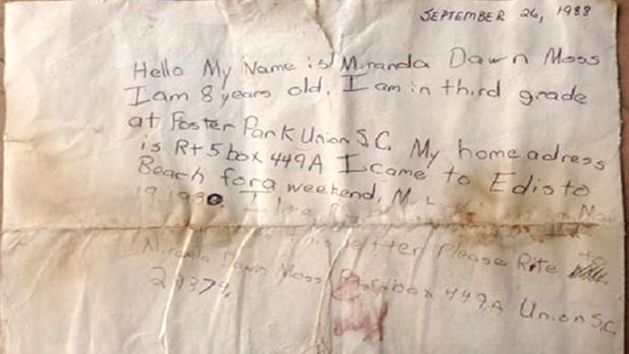 SEPTEMBER 26, 1988
Hello My Name is Miranda Dawn Moss
I am 8 years old. I am in third grade
at Foster Park Union S.C. My home adress
is Rt 5 box 449A I came to Edisto
Beach for a weekend,
19, 1980. I
letter Please Rite
Miranda Dawn Moss box 449A Union S.C.
29379